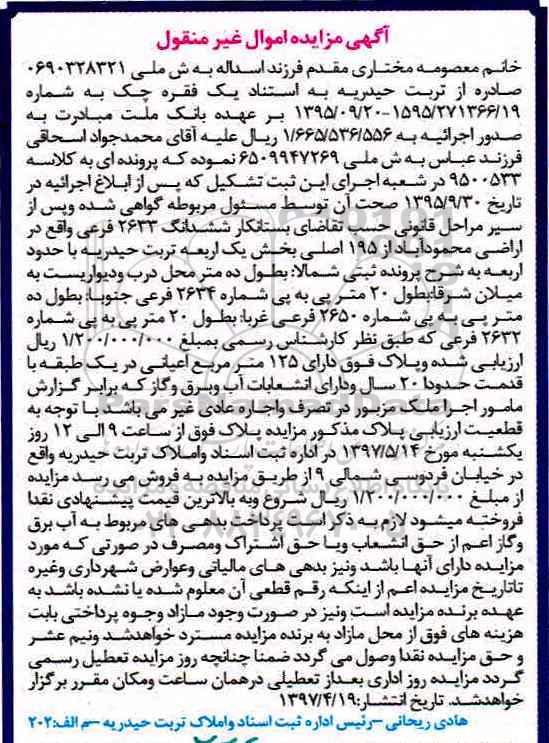 آگهی مزایده اموال غیر منقول
خانم معصومه مختاری مقدم فرزند اسداله به ش ملی ۰۶۹۰۳۲۸۳۲۱
صادره از تربت حیدریه به استناد یک فقره چک به شماره
۱۵۹۵/۲۷۱۳۶۶/۱۹-۱۳۹۵/۰۹/۲۰ بر عهده بانک ملت مبادرت به
صدور اجرائیه به ۱/۶۶۵/۵۳۶/۵۵۶ ریال علیه آقای محمدجواد اسحاقی
فرزند عباس به ش ملی ۶۵۰۹۹۴۷۲۶۹ نموده که پرونده ای به کلاسه
۹۵۰۰۵۳۳ در شعبه اجرای این ثبت تشکیل که پس از ابلاغ اجرائیه در
تاریخ ۱۳۹۵/۹/۳۰ صحت آن توسط مسئول مربوطه گواهی شده وپس از
سیر مراحل قانونی حسب تقاضای بستانکار ششدانگ ۲۶۳۳ فرعی واقع در
اراضی محمودآباد از ۱۹۵ اصلی بخش یک اربعه تربت حیدریه با حدود
اربعه به شرح پرونده ثبتی شمالا: بطول ده متر محل درب ودیواریست به
میلان شرقا:بطول ۲۰ متر پی به پی شماره ۲۶۳۴ فرعی جنوبا: بطول ده
متر پی به پی شماره ۲۶۵۰ فرعی غربا: بطول ۲۰ متر پی به پی شماره
۲۶۳۲ فرعی که طبق نظر کارشناس رسمی بمبلغ ۱/۲۰۰/۰۰۰/۰۰۰ ریال
ارزیابی شده وپلاک فوق دارای ۱۲۵ متر مربع اعیانی در یک طبقه با
قدمت حدودا ۲۰ سال ودارای انشعابات آب وبرق وگاز که برابر گزارش
مامور اجرا ملک مزبور در تصرف واجاره عادی غیر می باشد با توجه به
قطعیت ارزیابی پلاک مذکور مزایده پلاک فوق از ساعت ۹ الی ۱۲ روز
یکشنبه مورخ ۱۳۹۷/۵/۱۴ در اداره ثبت اسناد واملاک تربت حیدریه واقع
در خیابان فردوسی شمالی ۹ از طریق مزایده به فروش می رسد مزایده
از مبلغ ۱/۲۰۰/۰۰۰/۰۰۰ ریال شروع وبه بالاترین قیمت پیشنهادی نقدا
فروخته میشود لازم به ذکر است پرداخت بدهی های مربوط به آب برق
وگاز اعم از حق انشعاب ویا حق اشتراک ومصرف در صورتی که مورد
مزایده دارای آنها باشد ونیز بدهی های مالیاتی وعوارض شهرداری وغیره
تاتاریخ مزایده اعم از اینکه رقم قطعی آن معلوم شده یا نشده باشد به
عهده برنده مزایده است ونیز در صورت وجود مازاد وجوه پرداختی بابت
هزینه های فوق از محل مازاد به برنده مزایده مسترد خواهدشد ونیم عشر
و حق مزایده نقدا وصول می گردد ضمنا چنانچه روز مزایده تعطیل رسمی
گردد مزایده روز اداری بعداز تعطیلی درهمان ساعت ومکان مقرر برگزار
خواهدشد. تاریخ انتشار:۱۳۹۷/۴/۱۹
هادی ریحانی -رئیس اداره ثبت اسناد واملاک تربت حیدریه -م الف:۲۰۲